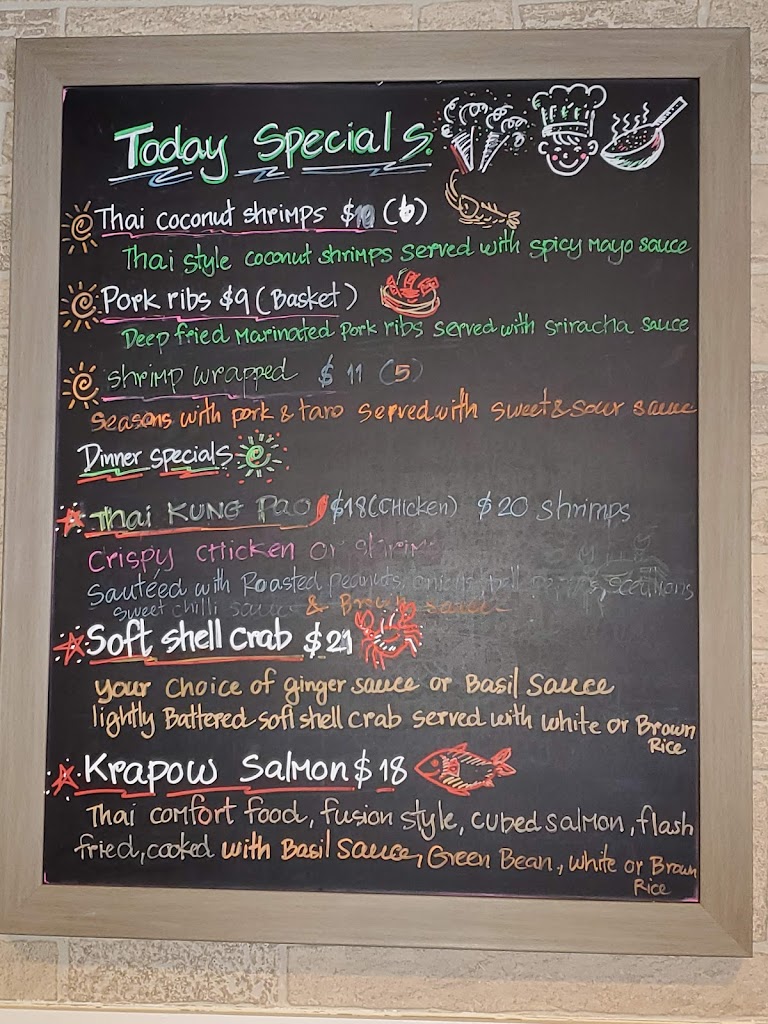 Today Specials.
Thai coconut shrimps $10 (6)
Thai style coconut shrimps served with spicy mayo sauce
Pork ribs $9 (Basket)
Deep fried Marinated pork ribs served with sriracha sauce
shrimp wrapped $ 11 (5)
Seasons with pork & taro served with sweet & sour sauce
Dinner specials
Thai KUNG PAO $18 (CHICKEN) $20 Shrimps
Crispy CHICKEN or Shrimp
Sautéed with Roasted peanuts, onions, bell peppers, scallions
sweet chilli sauce & Brown sauce
Soft shell crab $21
your choice of ginger sauce or Basil Sauce
lightly Battered soft shell crab served with white or Brown
Rice
Krapow Salmon $18
Thai comfort food, fusion style, cubed salmon, flash
fried, cooked with Basil Sauce, Green Bean, white or Brown
Rice